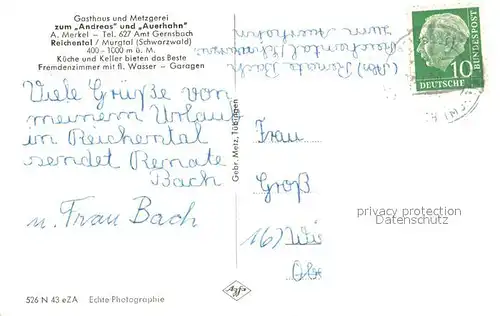 Gasthaus und Metzgerei
zum „Andreas" und „Auerhahn"
A. Merkel - Tel. 627 Amt Gernsbach
Reichental / Murgtal (Schwarzwald)
400 - 1000 m ü. M.
Küche und Keller bieten das Beste
Fremdenzimmer mit fl. Wasser - Garagen
Viele Grüße von
meinem Urlaub
in Reichental
sendet Renate
Bach
u. Frau Bach
526 N 43 eZA Echte Photographie
Gebr. Metz, Tübingen
Renate Bach
zum Auerhahn
10
DEUTSCHE
BUNDESPOST
Frau
Groß
16) Wie
privacy protection
Datenschutz
Agfa